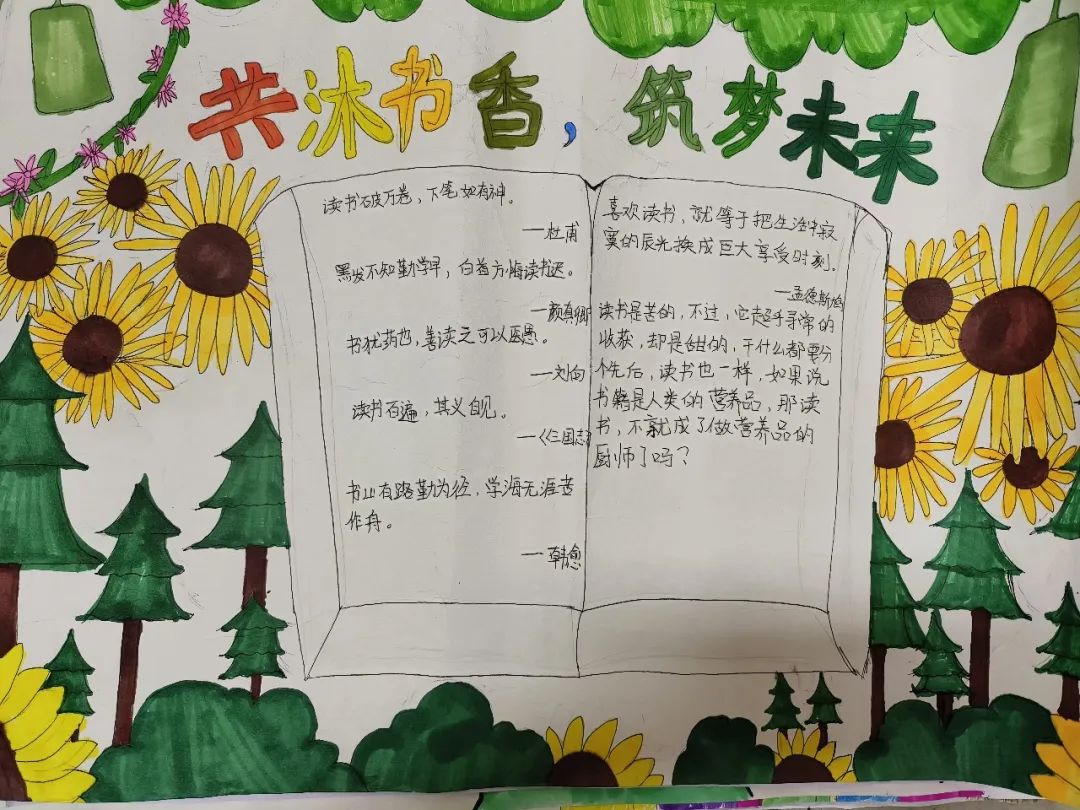 共沐书香，筑梦未来
读书破万卷，下笔如有神。
—杜甫
黑发不知勤学早，白首方悔读书迟。
—颜真卿
书犹药也，善读之可以医愚。
—刘向
读书百遍，其义自见。
—《三国志》
书山有路勤为径，学海无涯苦
作舟。
—韩愈
喜欢读书，就等于把生活中寂
寞的辰光换成巨大享受时刻。
—孟德斯鸠
读书是苦的，不过，它超乎寻常的
收获，却是甜的，干什么都要分
个先后，读书也一样，如果说
书籍是人类的营养品，那读
书，不就成了做营养品的
厨师了吗？